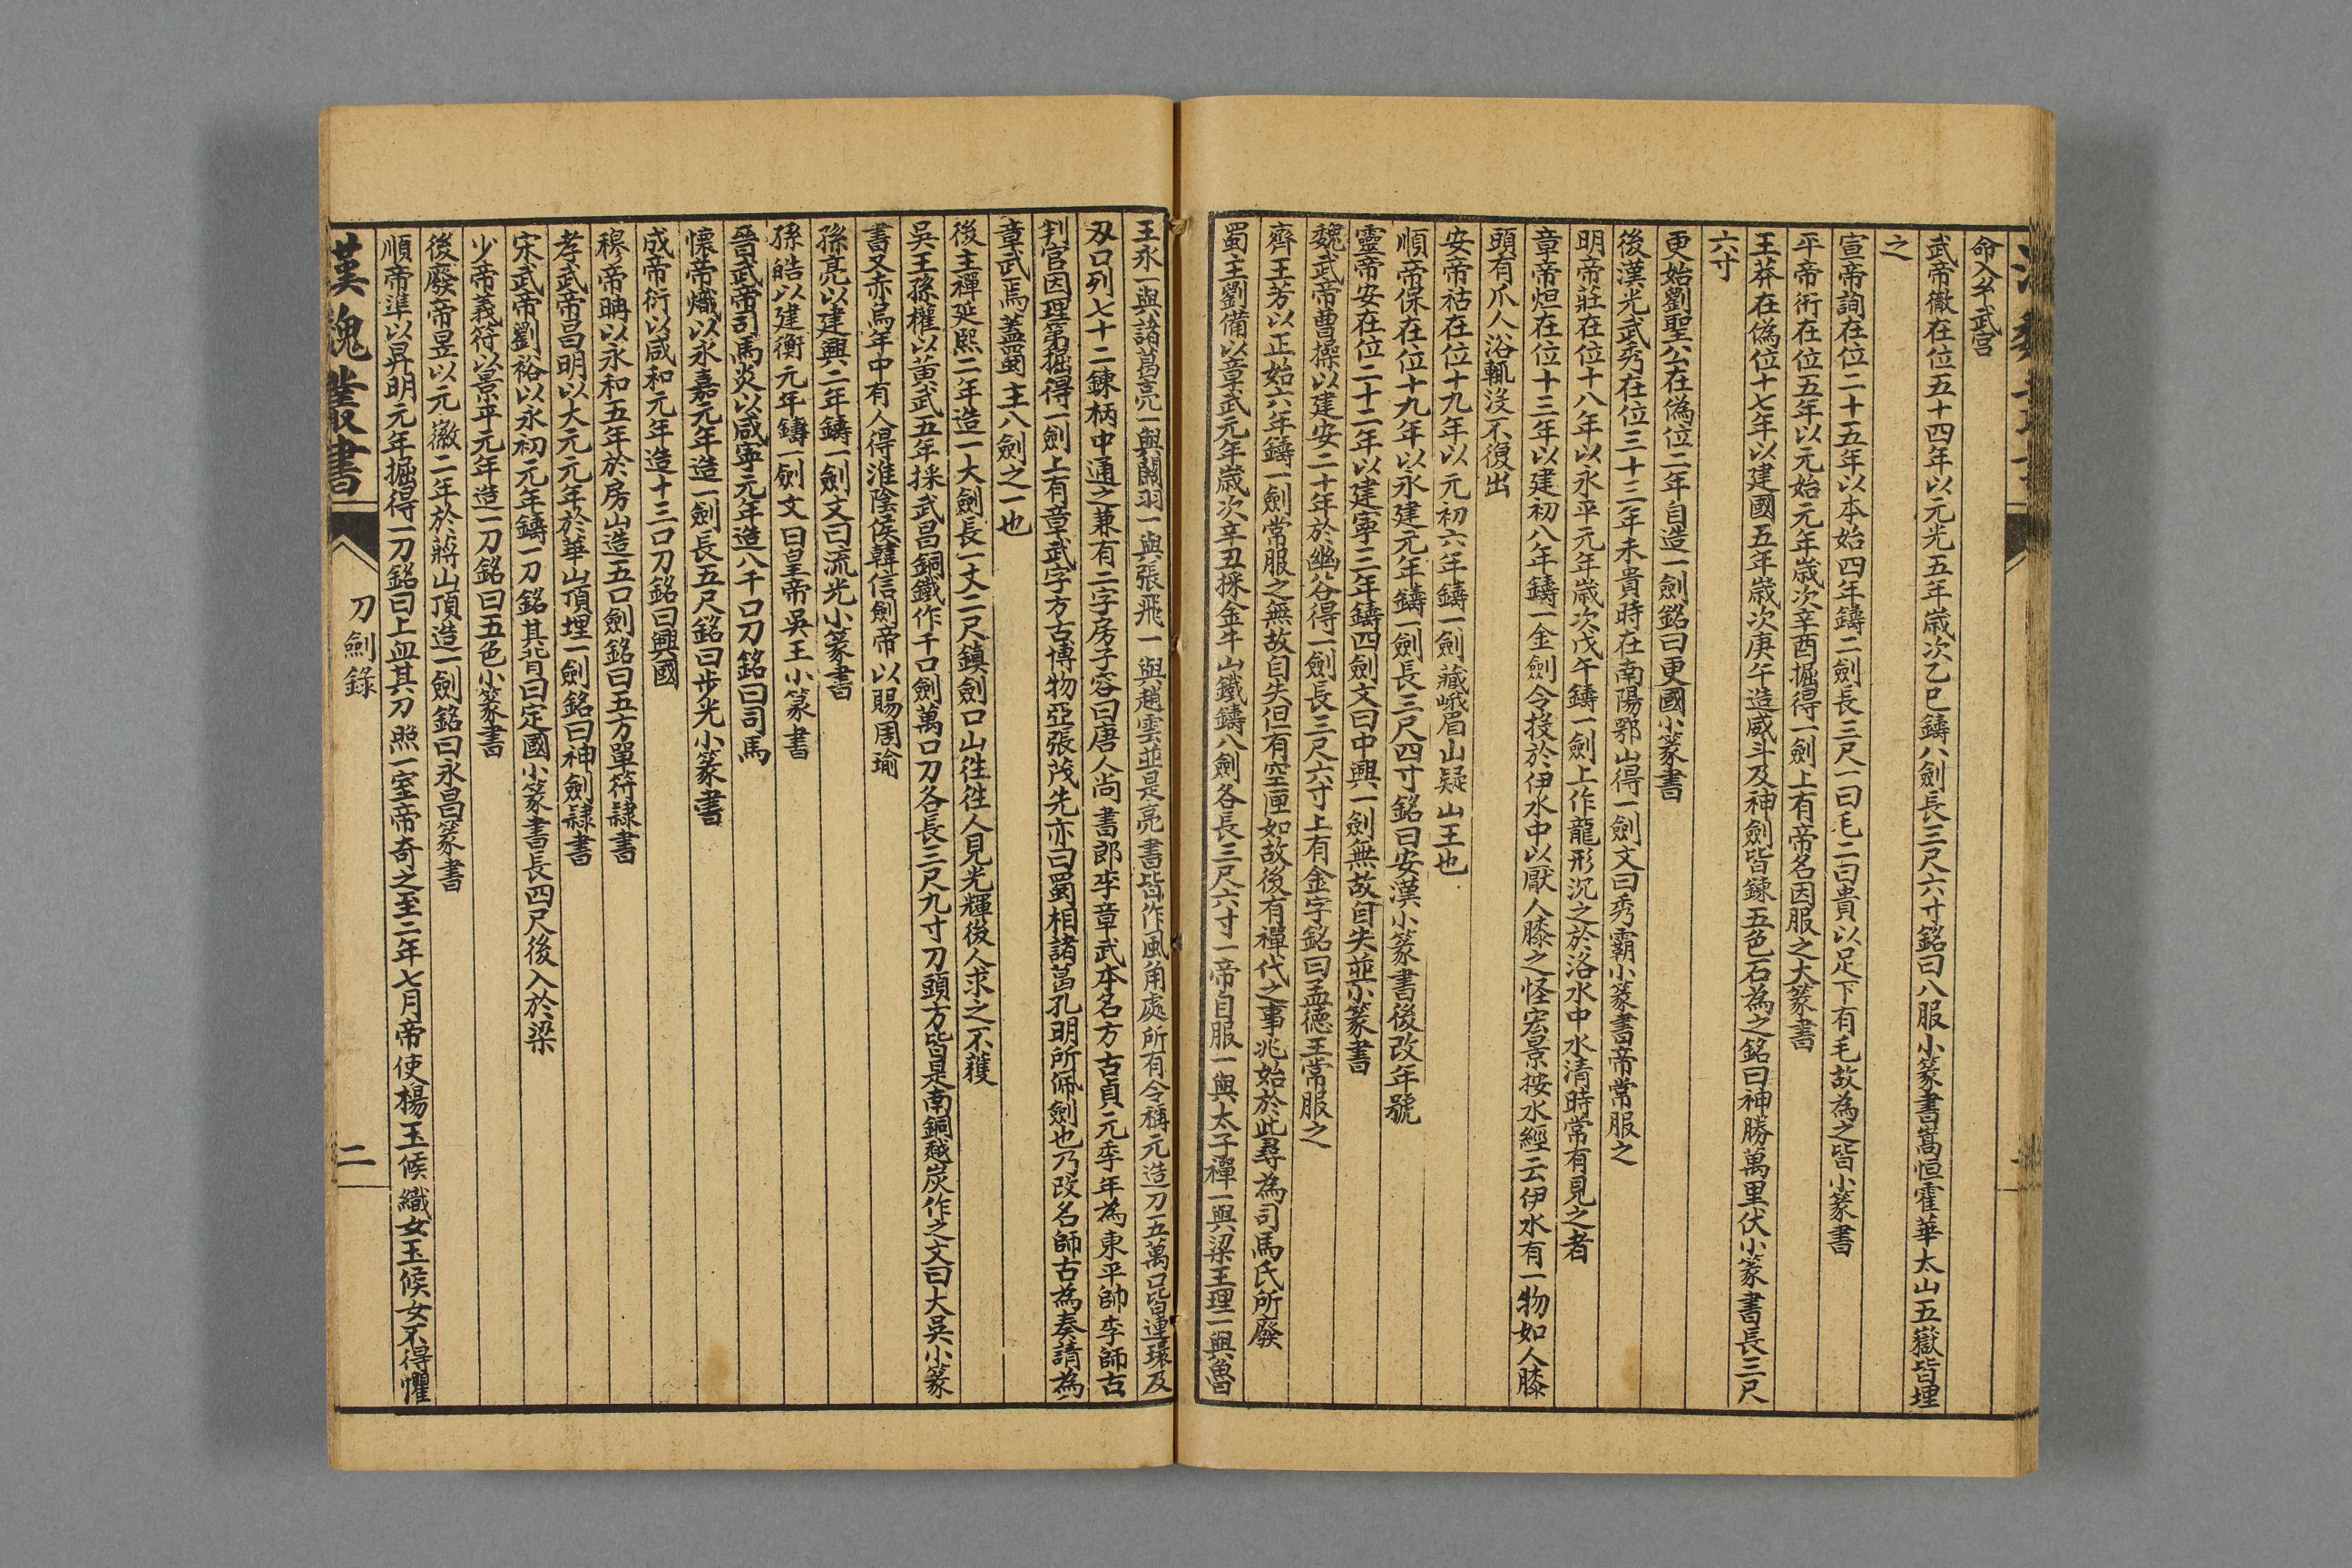 命入玄武宫
武帝徹在位五十四年以元光五年歳次乙巳鑄八劍長三尺六寸銘曰八服小篆書嵩恒霍華太山五嶽皆埋
之
宣帝詢在位二十五年以本始四年鑄二劍長三尺一曰毛二曰貴以足下有毛故為之皆小篆書
平帝衎在位五年以元始元年歳次辛酉掘得一劍上有帝名因服之大篆書
王莽在偽位十七年以建國五年歳次庚午造威斗及神劍皆鍊五色石為之銘曰神勝萬里伏小篆書長三尺
六寸
更始劉聖公在偽位二年自造一劍銘曰更國小篆書
後漢光武秀在位三十三年未貴時在南陽鄂山得一劍文曰秀霸小篆書帝常服之
明帝莊在位十八年以永平元年歳次戊午鑄一劍上作龍形沉之於洛水中水清時常有見之者
章帝炟在位十三年以建初八年鑄一金劍令投於伊水中以厭人膝之怪宏景按水經云伊水有一物如人膝
頭有爪人浴輒没不復出
安帝祜在位十九年以元初六年鑄一劍藏峨眉山疑山王也
順帝保在位十九年以永建元年鑄一劍長三尺四寸銘曰安漢小篆書後改年號
靈帝安在位二十二年以建寧三年鑄四劍文曰中興一劍無故自失並小篆書
魏武帝曹操以建安二十年於幽谷得一劍長三尺六寸上有金字銘曰孟德王常服之
齊王芳以正始六年鑄一劍常服之無故自失但有空匣如故後有禪代之事兆始於此尋為司馬氏所廢
蜀主劉備以章武元年歳次辛丑採金牛山鐵鑄八劍各長三尺六寸一帝自服一與太子禪一與梁王理一與魯
王永一與諸葛亮一與關羽一與張飛一與趙雲並是亮書皆作風角處所有令稱元造刀五萬口皆連環及
刄口列七十二鍊柄中通之兼有二字房子容曰唐人尚書郎李章武本名方古貞元季年為東平帥李師古
判官因理第掘得一劍上有章武字方古博物亞張茂先亦曰蜀相諸葛孔明所佩劍也乃改名師古為奏請為
章武焉蓋蜀主八劍之一也
後主禪延熙二年造一大劍長一丈二尺鎮劍口山往往人見光輝後人求之不獲
吳王孫權以黄武五年採武昌銅鐵作千口劍萬口刀各長三尺九寸刀頭方皆是南銅越炭作之文曰大吳小篆
書又赤烏年中有人得淮陰侯韓信劍帝以賜周瑜
孫亮以建興二年鑄一劍文曰流光小篆書
孫皓以建衡元年鑄一劍文曰皇帝吳王小篆書
晉武帝司馬炎以咸寧元年造八千口刀銘曰司馬
懷帝熾以永嘉元年造一劍長五尺銘曰步光小篆書
成帝衍以咸和元年造十三口刀銘曰興國
穆帝聃以永和五年於房山造五口劍銘曰五方單符隷書
孝武帝昌明以大元元年於華山頂埋一劍銘曰神劍隷書
宋武帝劉裕以永初元年鑄一刀銘其背曰定國小篆書長四尺後入於梁
少帝義符以景平元年造一刀銘曰五色小篆書
後廢帝昱以元徽二年於蔣山頂造一劍銘曰永昌篆書
順帝準以昇明元年掘得一刀銘曰上血其刀照一室帝奇之至二年七月帝使楊玉候織女玉候女不得懼
漢魏叢書
刀劍錄
二